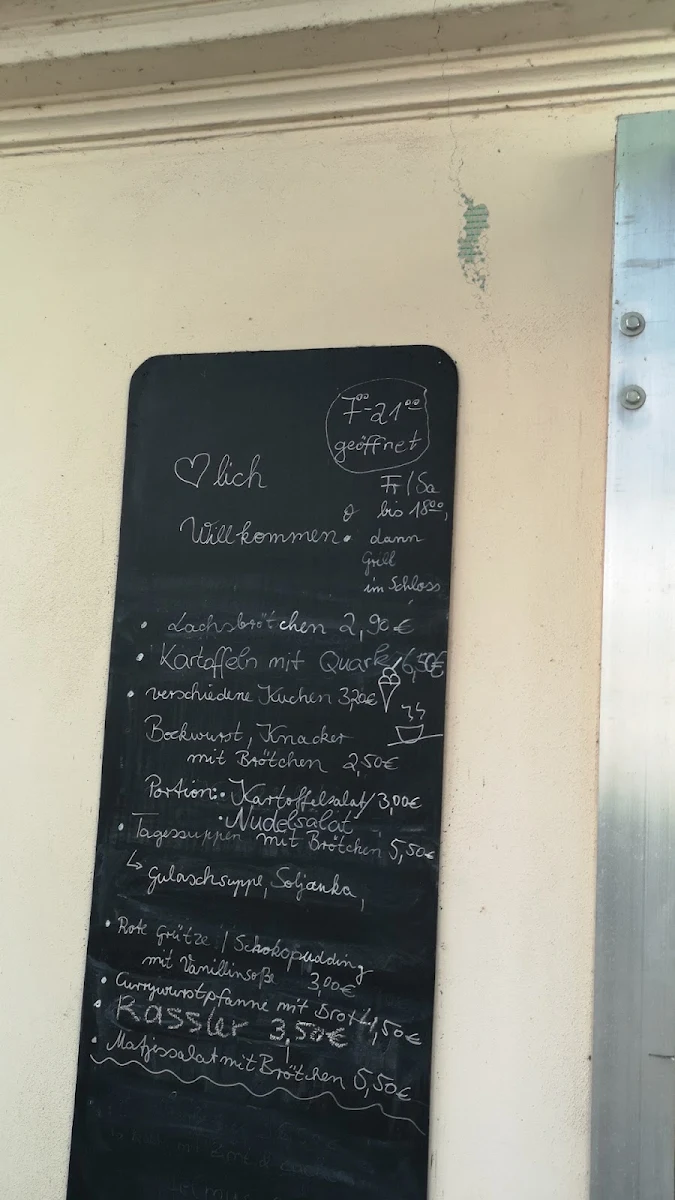 7⁰⁰-21⁰⁰
geöffnet
♡lich
Willkommen
Fr/Sa
bis 18⁰⁰,
dann
Grill
im Schloss
• Lachsbrötchen 2,90€
• Kartoffeln mit Quark 6,50€
• verschiedene Kuchen 3,20€
Bockwurst, Knacker
mit Brötchen 2,50€
Portion: • Kartoffelsalat/ 3,00€
• Nudelsalat
• Tagessuppen mit Brötchen 5,50€
↳ Gulaschsuppe, Soljanka,
• Rote Grütze / Schokopudding
mit Vanillinsoße 3,00€
• Currywurstpfanne mit Brot 4,50€
• Kassler 3,50€
• Matjessalat mit Brötchen 5,50€